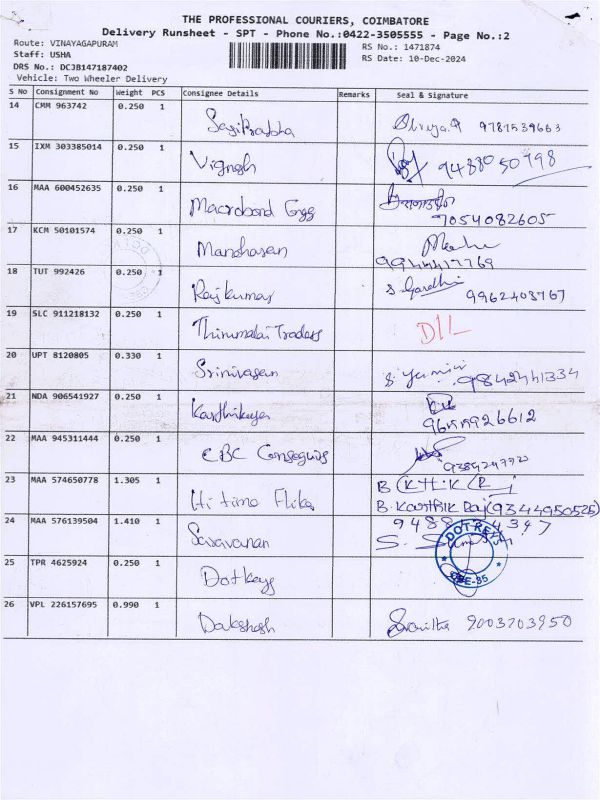 THE PROFESSIONAL COURIERS, COIMBATORE
Delivery Runsheet - SPT - Phone No.:0422-3505555 - Page No.:2
Route: VINAYAGAPURAM
Staff: USHA
DRS No.: DCJB147187402
Vehicle: Two Wheeler Delivery
RS No.: 1471874
RS Date: 10-Dec-2024
S No Consignment No Weight PCS Consignee Details Remarks Seal & Signature
14 CMM 963742 0.250 1 9787539663
15 IXM 303385014 0.250 1 Vignesh 9488050798
16 MAA 600452635 0.250 1 Macrobond Engg
7054082605
17 KCM 50101574 0.250 1 Manoharan
18 TUT 992426 0.250 1 Rajkumar S. Gandhi 9962403767
19 SLC 911218132 0.250 1 Thirumalai Traders D/L
20 UPT 8120805 0.330 1 Srinivasan
21 NDA 906541927 0.250 1 Karthikeya
22 MAA 945311444 0.250 1 CBC
23 MAA 574650778 1.305 1
B. Karthik Raj (9344950525)
24 MAA 576139504 1.410 1 Saravanan
25 TPR 4625924 0.250 1 Dotkeys
26 VPL 226157695 0.990 1 Dakshesh 9003203950